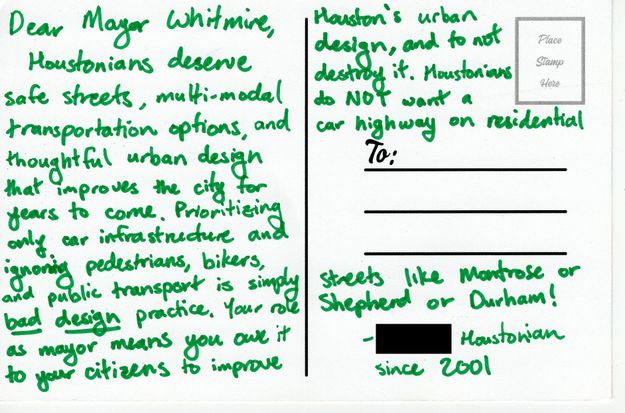 Dear Mayor Whitmire,
Houstonians deserve
safe streets, multi-modal
transportation options, and
thoughtful urban design
that improves the city for
years to come. Prioritizing
only car infrastructure and
ignoring pedestrians, bikers,
and public transport is simply
bad design practice. Your role
as mayor means you owe it
to your citizens to improve
Houston's urban
design, and to not
destroy it. Houstonians
do NOT want a
car highway on residential
Place
Stamp
Here
To:
streets like Montrose or
Shepherd or Durham!
- Houstonian
since 2001